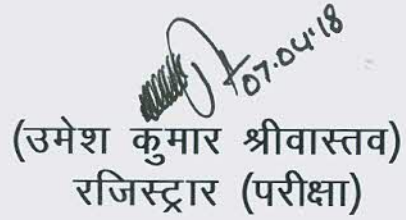 07.04.18
(उमेश कुमार श्रीवास्तव)
रजिस्ट्रार (परीक्षा)